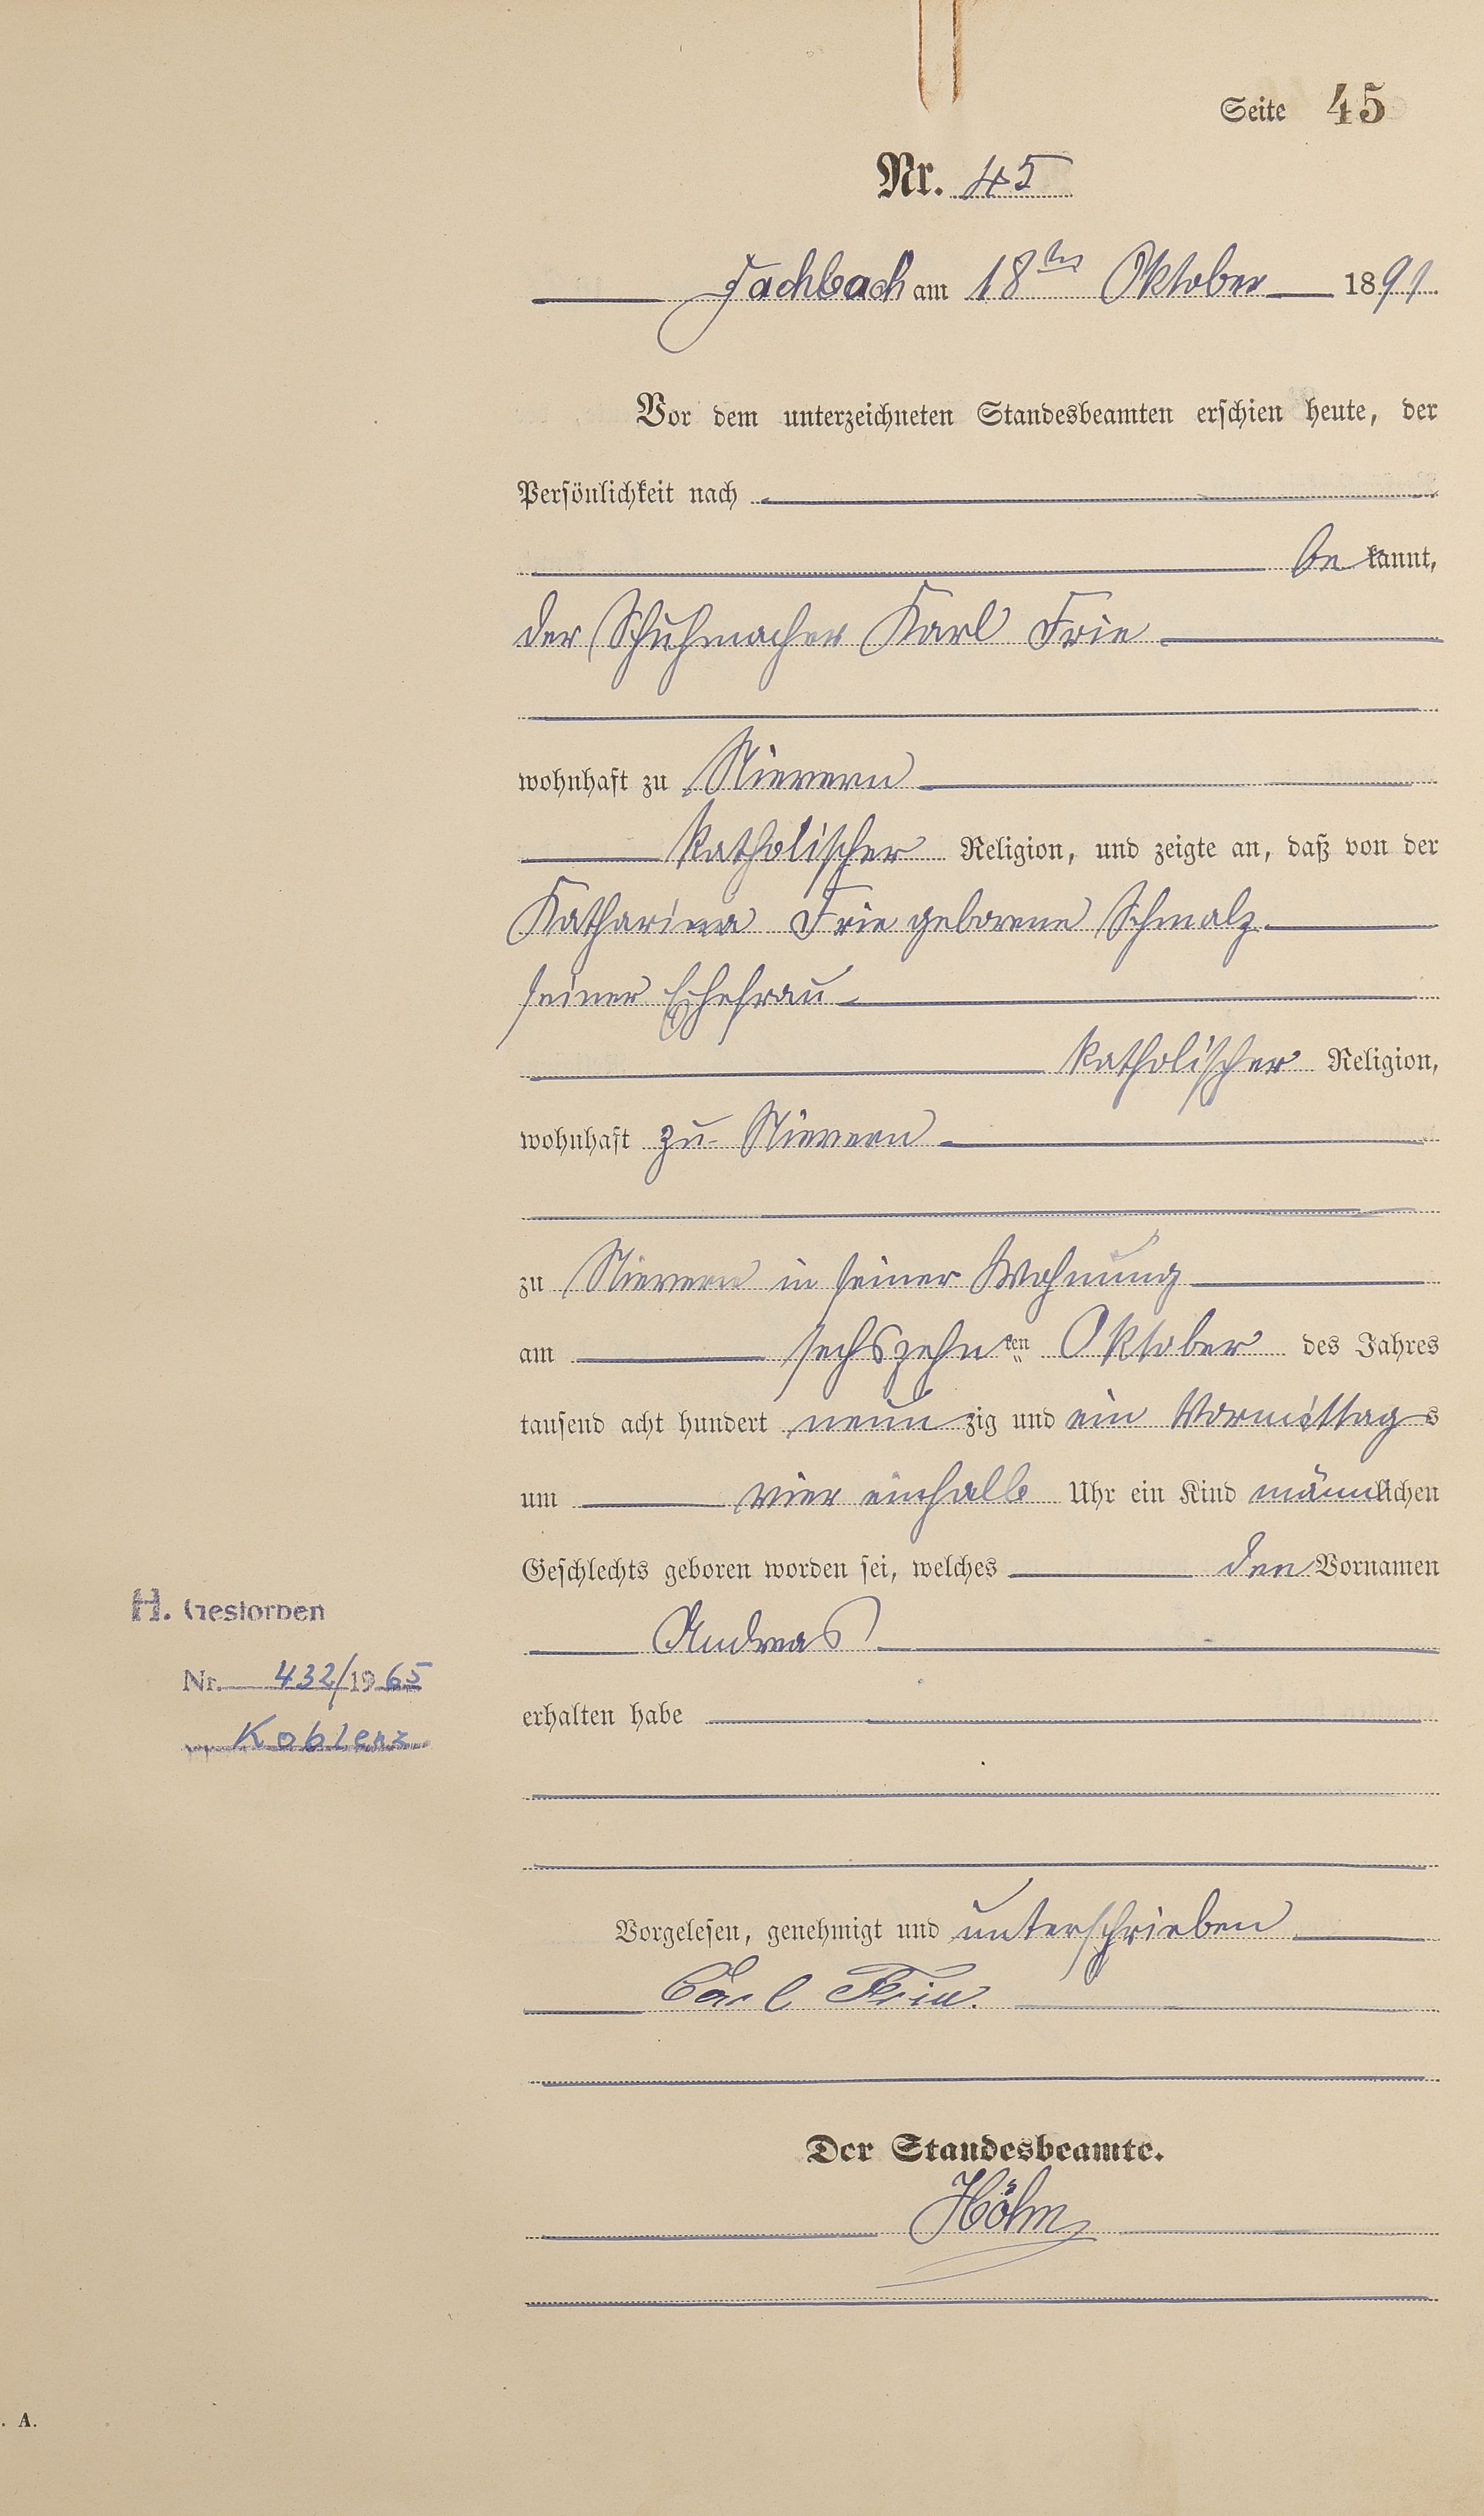 Seite 45
Nr. 45
Fachbach am 18ten Oktober 1891.
Vor dem unterzeichneten Standesbeamten erschien heute, der
Persönlichkeit nach
be kannt,
der Schuhmacher Karl Frie
wohnhaft zu Nievern
katholischer Religion, und zeigte an, daß von der
Katharina Frie geborene Schmalz
seiner Ehefrau
katholischer Religion,
wohnhaft zu Nievern
zu Nievern in seiner Wohnung
am sechszehnten Oktober des Jahres
tausend acht hundert neunzig und ein Vormittags
um vier einhalb Uhr ein Kind männlichen
Geschlechts geboren worden sei, welches den Vornamen
H. Gestorben
Andreas
Nr. 432/1965
erhalten habe
Koblenz
Vorgelesen, genehmigt und unterschrieben
Carl Frie.
Der Standesbeamte.
Höhn
. A.